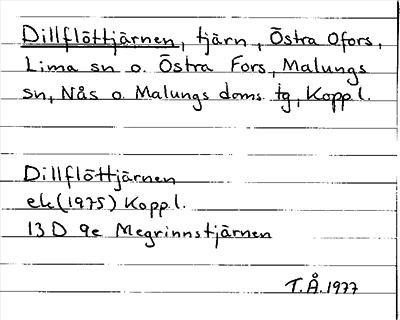 Dillflöttjärnen, tjärn, Östra Ofors,
Lima sn o. Östra Fors, Malungs
sn, Nås o. Malungs doms. tg, Koppl.
Dillflöttjärnen
ek (1975) Koppl.
13 D 9e Megrinnstjärnen
T.Å. 1977